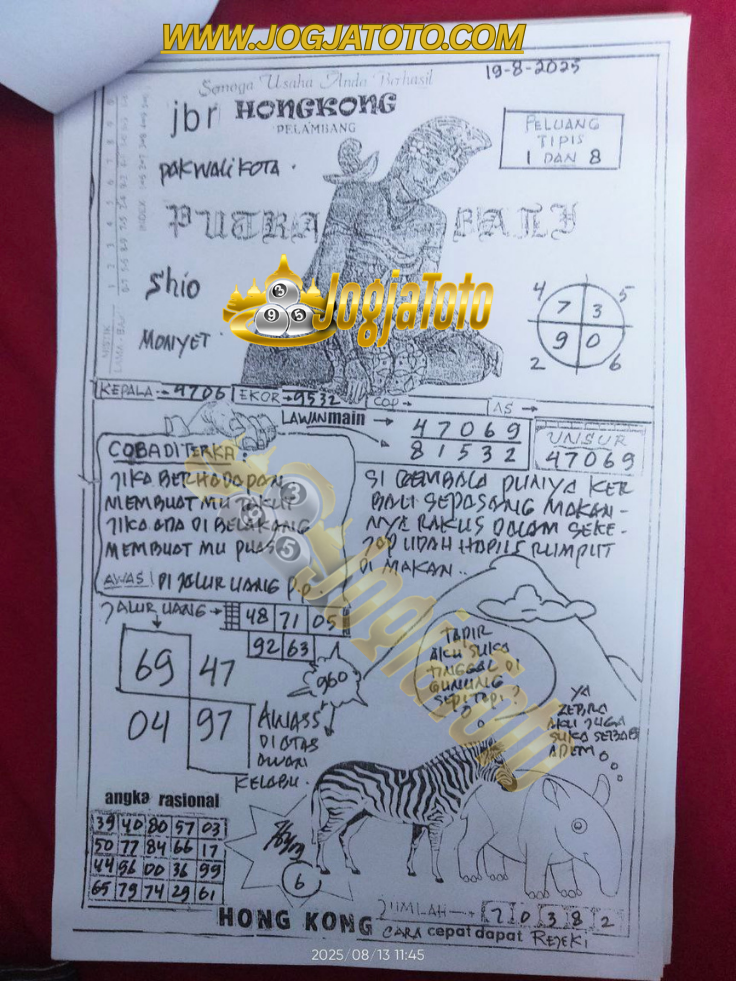 WWW.JOGJATOTO.COM
19-8-2025
Semoga Usaha Anda Berhasil
jbr HONGKONG
PELAMBANG
PELUANG
TIPIS
1 DAN 8
PAKWALIKOTA.
PUTRA BALI
Shio
MONYET
JogjaToto
4 5
7 3
9 0
2 6
KEPALA → 9706 EKOR → 9532 COP → AS →
LAWAN main →
47069
81532
UNSUR
47069
COBA DITERKA:
JIKA BERHADAPAN
MEMBUAT MU TAKUT
JIKA ADA DI BELAKANG
MEMBUAT MU PUAS
AWAS! DI JALUR UANG P.P
SI GEMBALA PUNYA KER
BAU SEPASANG MAKAN-
NYA RAKUS DALAM SEKE-
JAP UDAH HABIS RUMPUT
DI MAKAN..
JALUR UANG → 48 71 05
92 63
960
69 47
04 97
AWASS
DIATAS
AWAN
KELABU.
TAPIR
AKU SUKA
TINGGAL DI
GUNUNG
SEPI TAPI?
YA
ZEBRA
AKU JUGA
SUKA SEBAB
ADEM
angka rasional
39 40 80 57 03
50 77 84 66 17
44 96 00 36 99
65 79 74 29 61
6
JUMLAH → 7 0 3 8 2
HONG KONG CARA cepat dapat REJEKI
2025/08/13 11:45